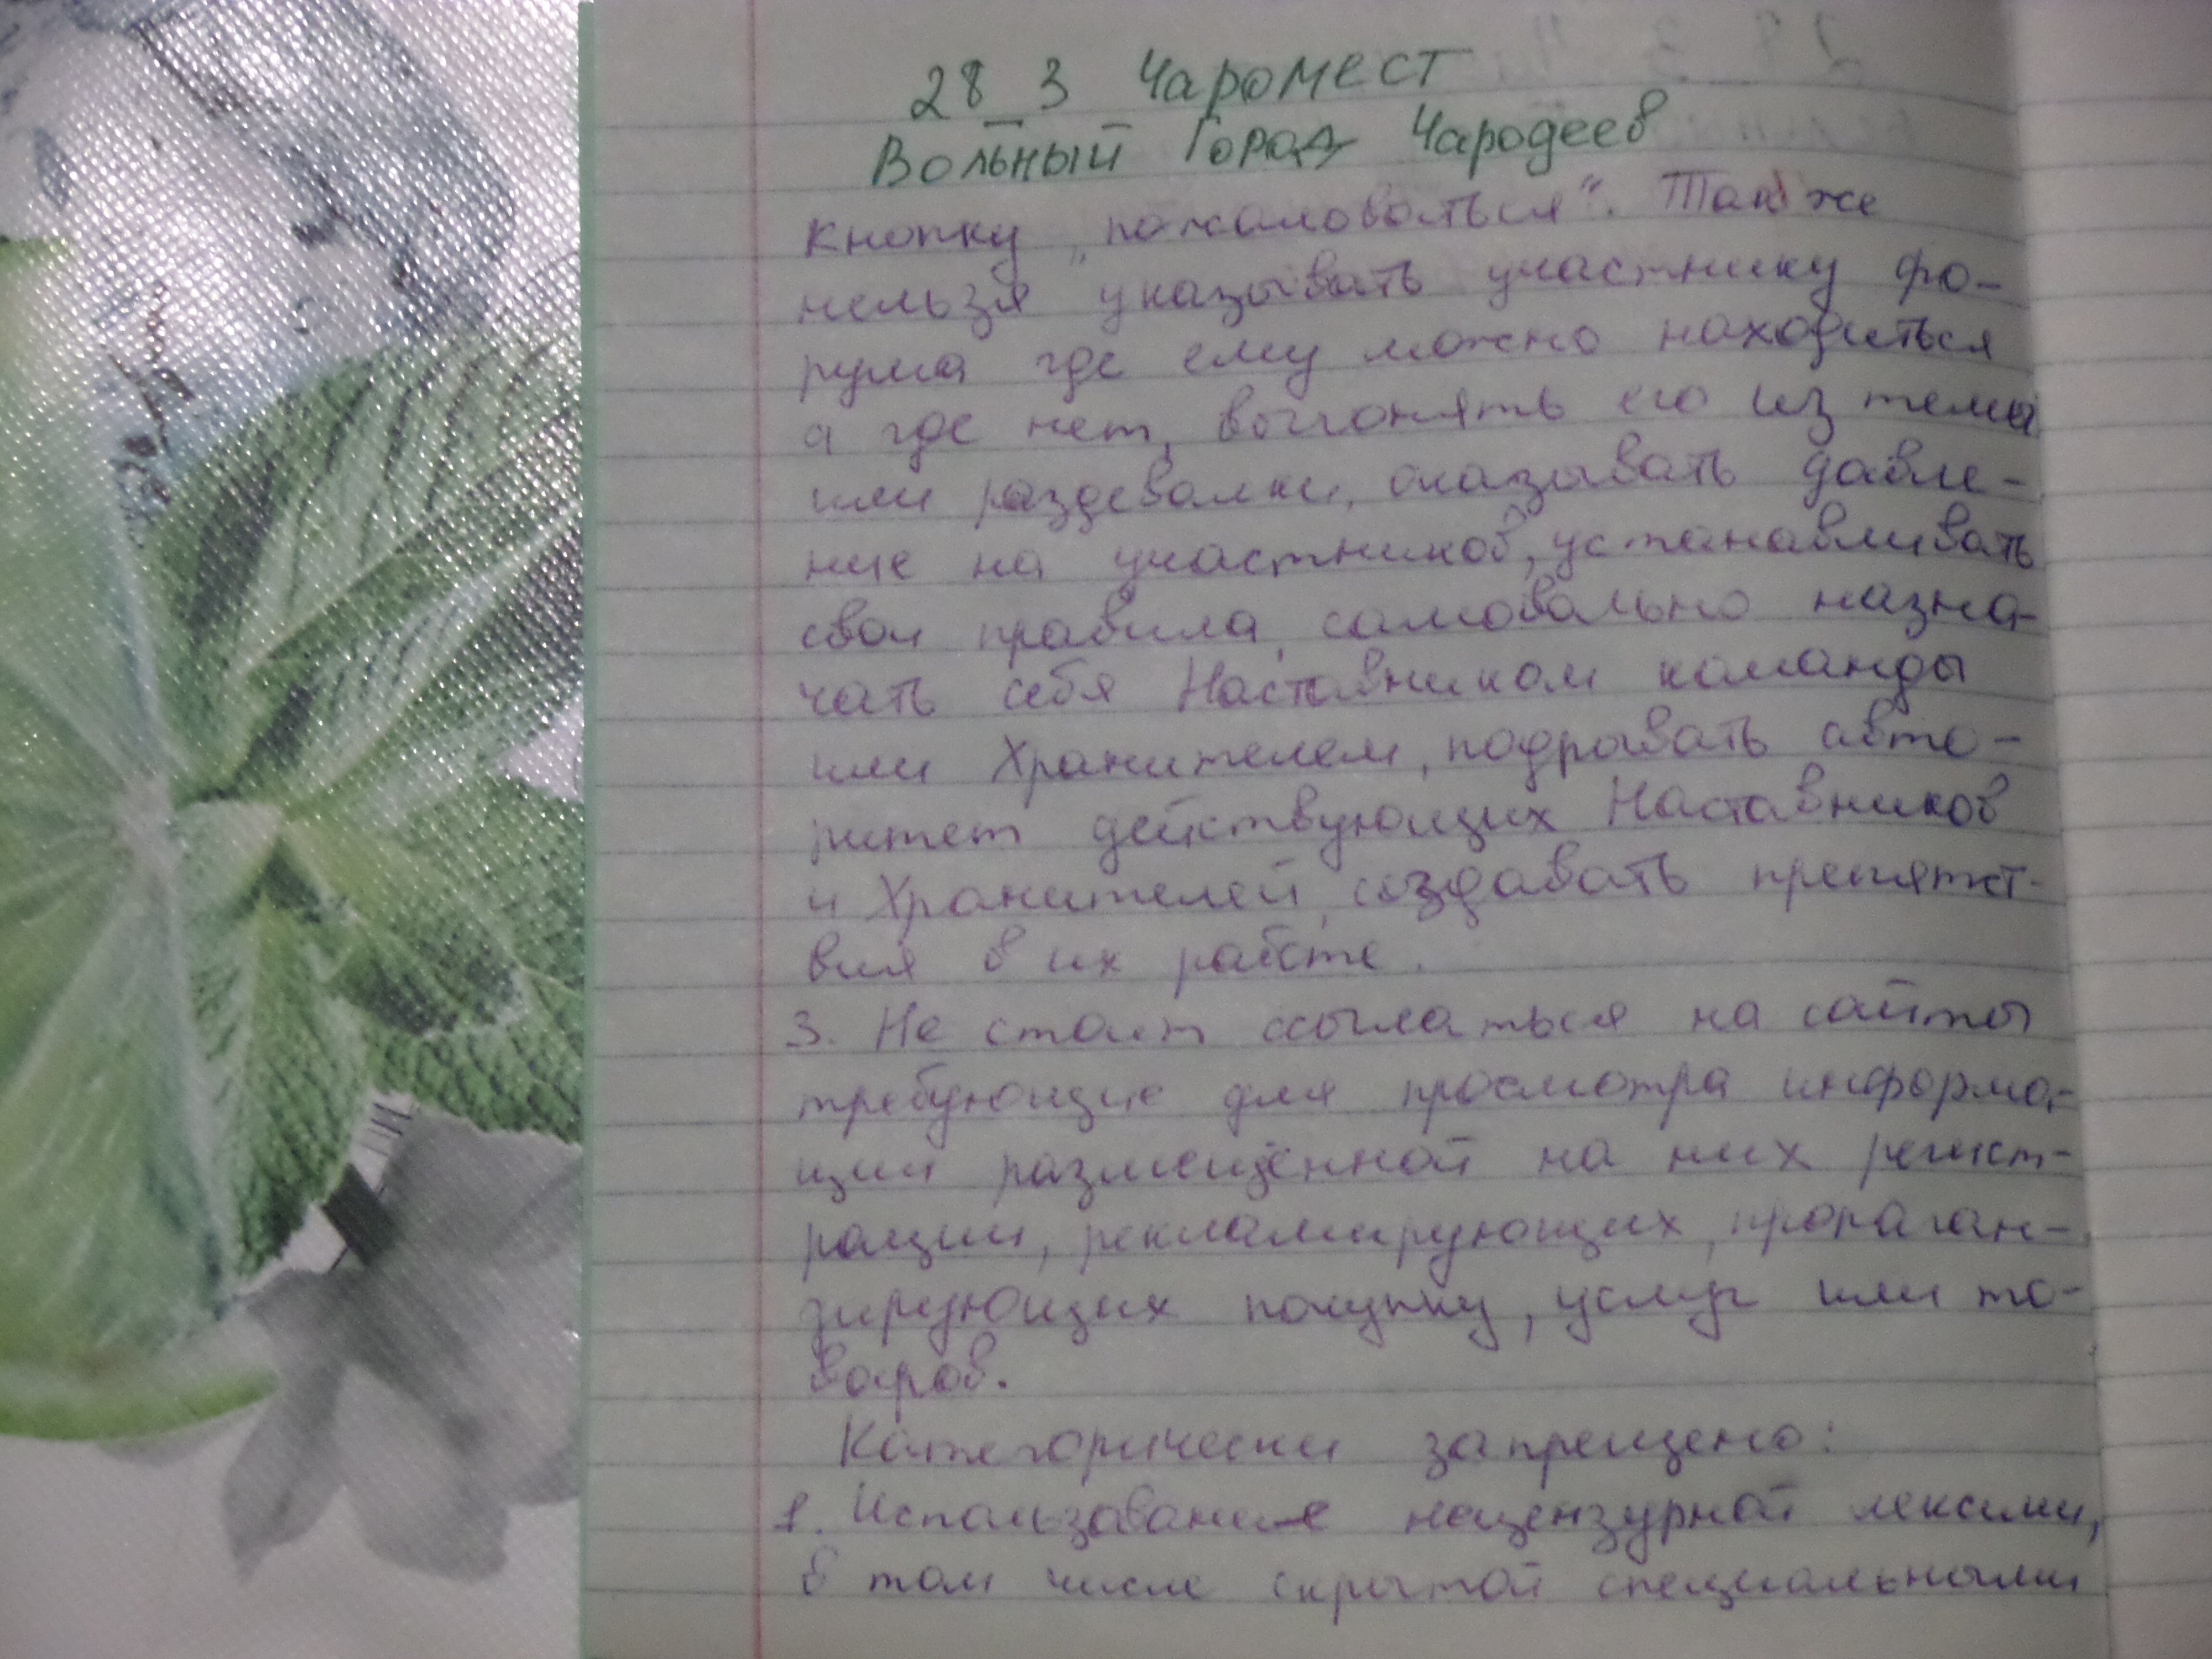 28_3 Чаромест
Вольный Город Чародеев
кнопку „пожаловаться“. Так же
нельзя указывать участнику фо-
рума где ему можно находиться
а где нет, выгонять его из темы
или раздевалки, оказывать давле-
ние на участников, устанавливать
свои правила, самовольно назна-
чать себя Наставником команды
или Хранителем, подрывать авто-
ритет действующих Наставников
и Хранителей, создавать препятст-
вия в их работе.
3. Не стоит ссылаться на сайты
требующие для просмотра информа-
ции размещённой на них регист-
рации, рекламирующих, пропаган-
зирующих покупку, услуг или то-
варов.
Категорически запрещено:
1. Использование нецензурной лексики,
в том числе скрытой специальными